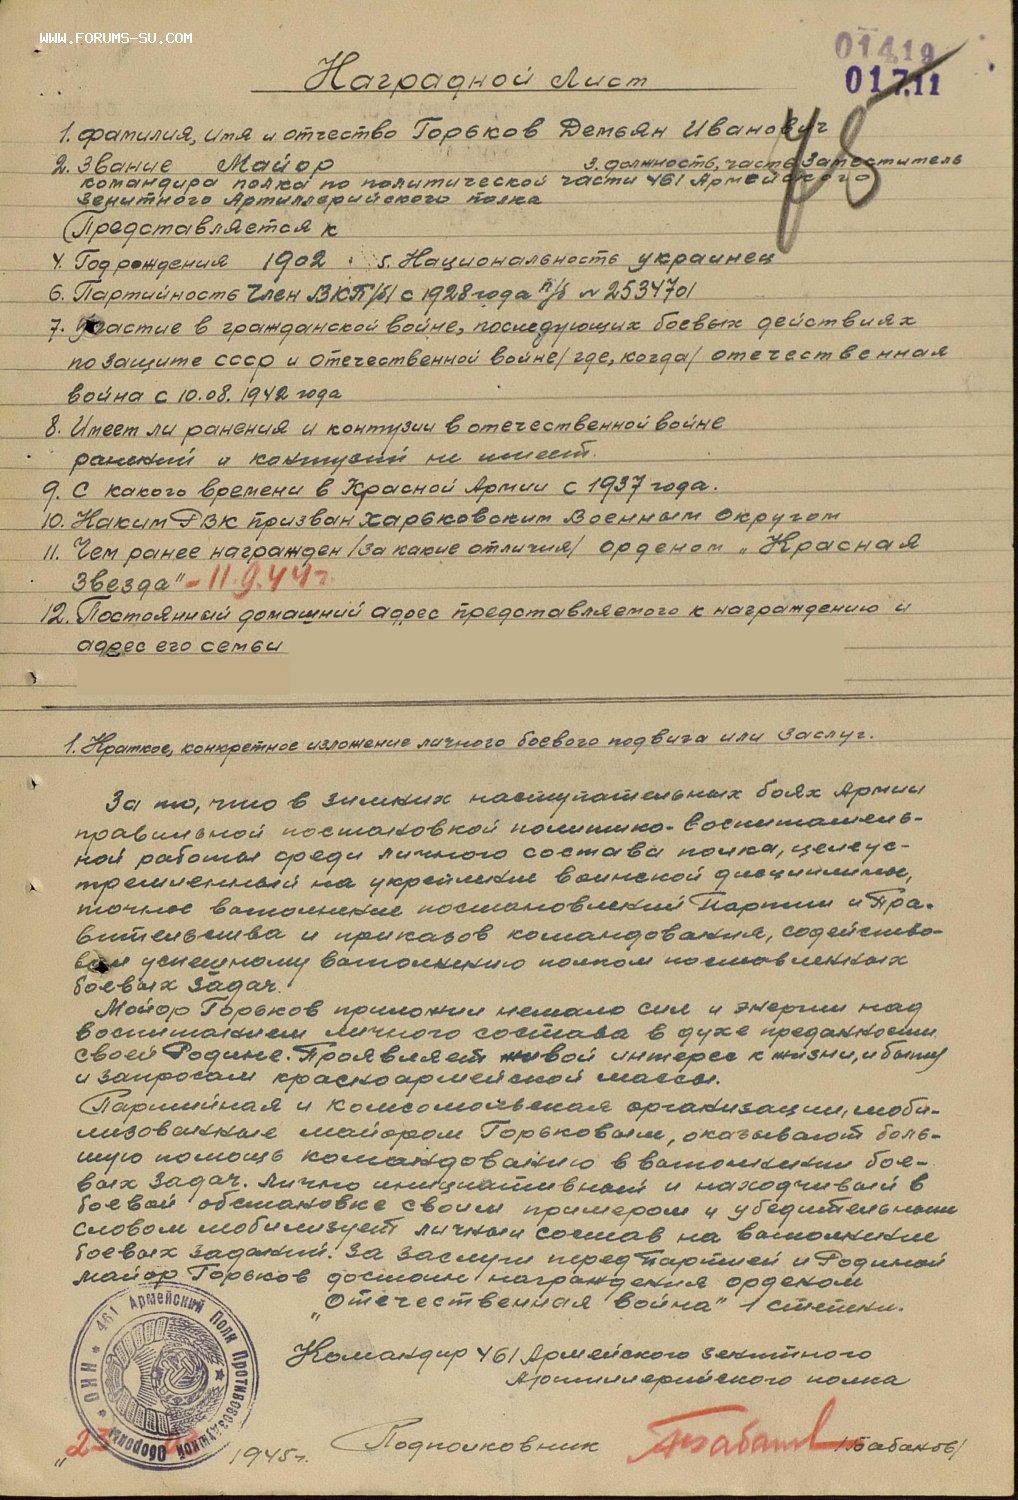 WWW.FORUMS-SU.COM
01419
01711
Наградной Лист
1. Фамилия, имя и отчество Горьков Демьян Иванович
2. Звание Майор 3. должность, часть Заместитель
командира полка по политической части 461 Армейского
Зенитного Артиллерийского полка
Представляется к
4. Год рождения 1902. 5. Национальность украинец
6. Партийность Член ВКП/б/ с 1928 года п/б № 2534701
7. Участие в гражданской войне, последующих боевых действиях
по защите СССР и отечественной войне/где, когда/ отечественная
война с 10.08.1942 года
8. Имеет ли ранения и контузии в отечественной войне
ранений и контузий не имеет.
9. С какого времени в Красной Армии с 1937 года.
10. Каким РВК призван Харьковским Военным Округом
11. Чем ранее награжден /за какие отличия/ орденом „Красная
Звезда" - 11.9.44 г.
12. Постоянный домашний адрес представляемого к награждению и
адрес его семьи
1. Краткое, конкретное изложение личного боевого подвига или заслуг.
За то, что в зимних наступательных боях Армии
правильной постановкой политико-воспитатель-
ной работы среди личного состава полка, целеус-
тремленный на укрепление воинской дисциплины,
точное выполнение постановлений Партии и Пра-
вительства и приказов командования, содейство-
вал успешному выполнению полком поставленных
боевых задач.
Майор Горьков приложил немало сил и энергии над
воспитанием личного состава в духе преданности
своей Родине. Проявляет живой интерес к жизни, и быту
и запросам красноармейской массы.
Партийная и комсомольская организации, моби-
лизованные майором Горьковым, оказывают боль-
шую помощь командованию в выполнении бое-
вых задач. Лично инициативный и находчивый в
боевой обстановке своим примером и убедительным
словом мобилизует личный состав на выполнение
боевых заданий. За заслуги перед Партией и Родиной
майор Горьков достоин награждения орденом
„Отечественная война" 1 степени.
Командир 461 Армейского зенитного
Артиллерийского полка
Подполковник /Бабаков/
1945 г.
461 Армейский Полк Противовоздушной Обороны * НКО *